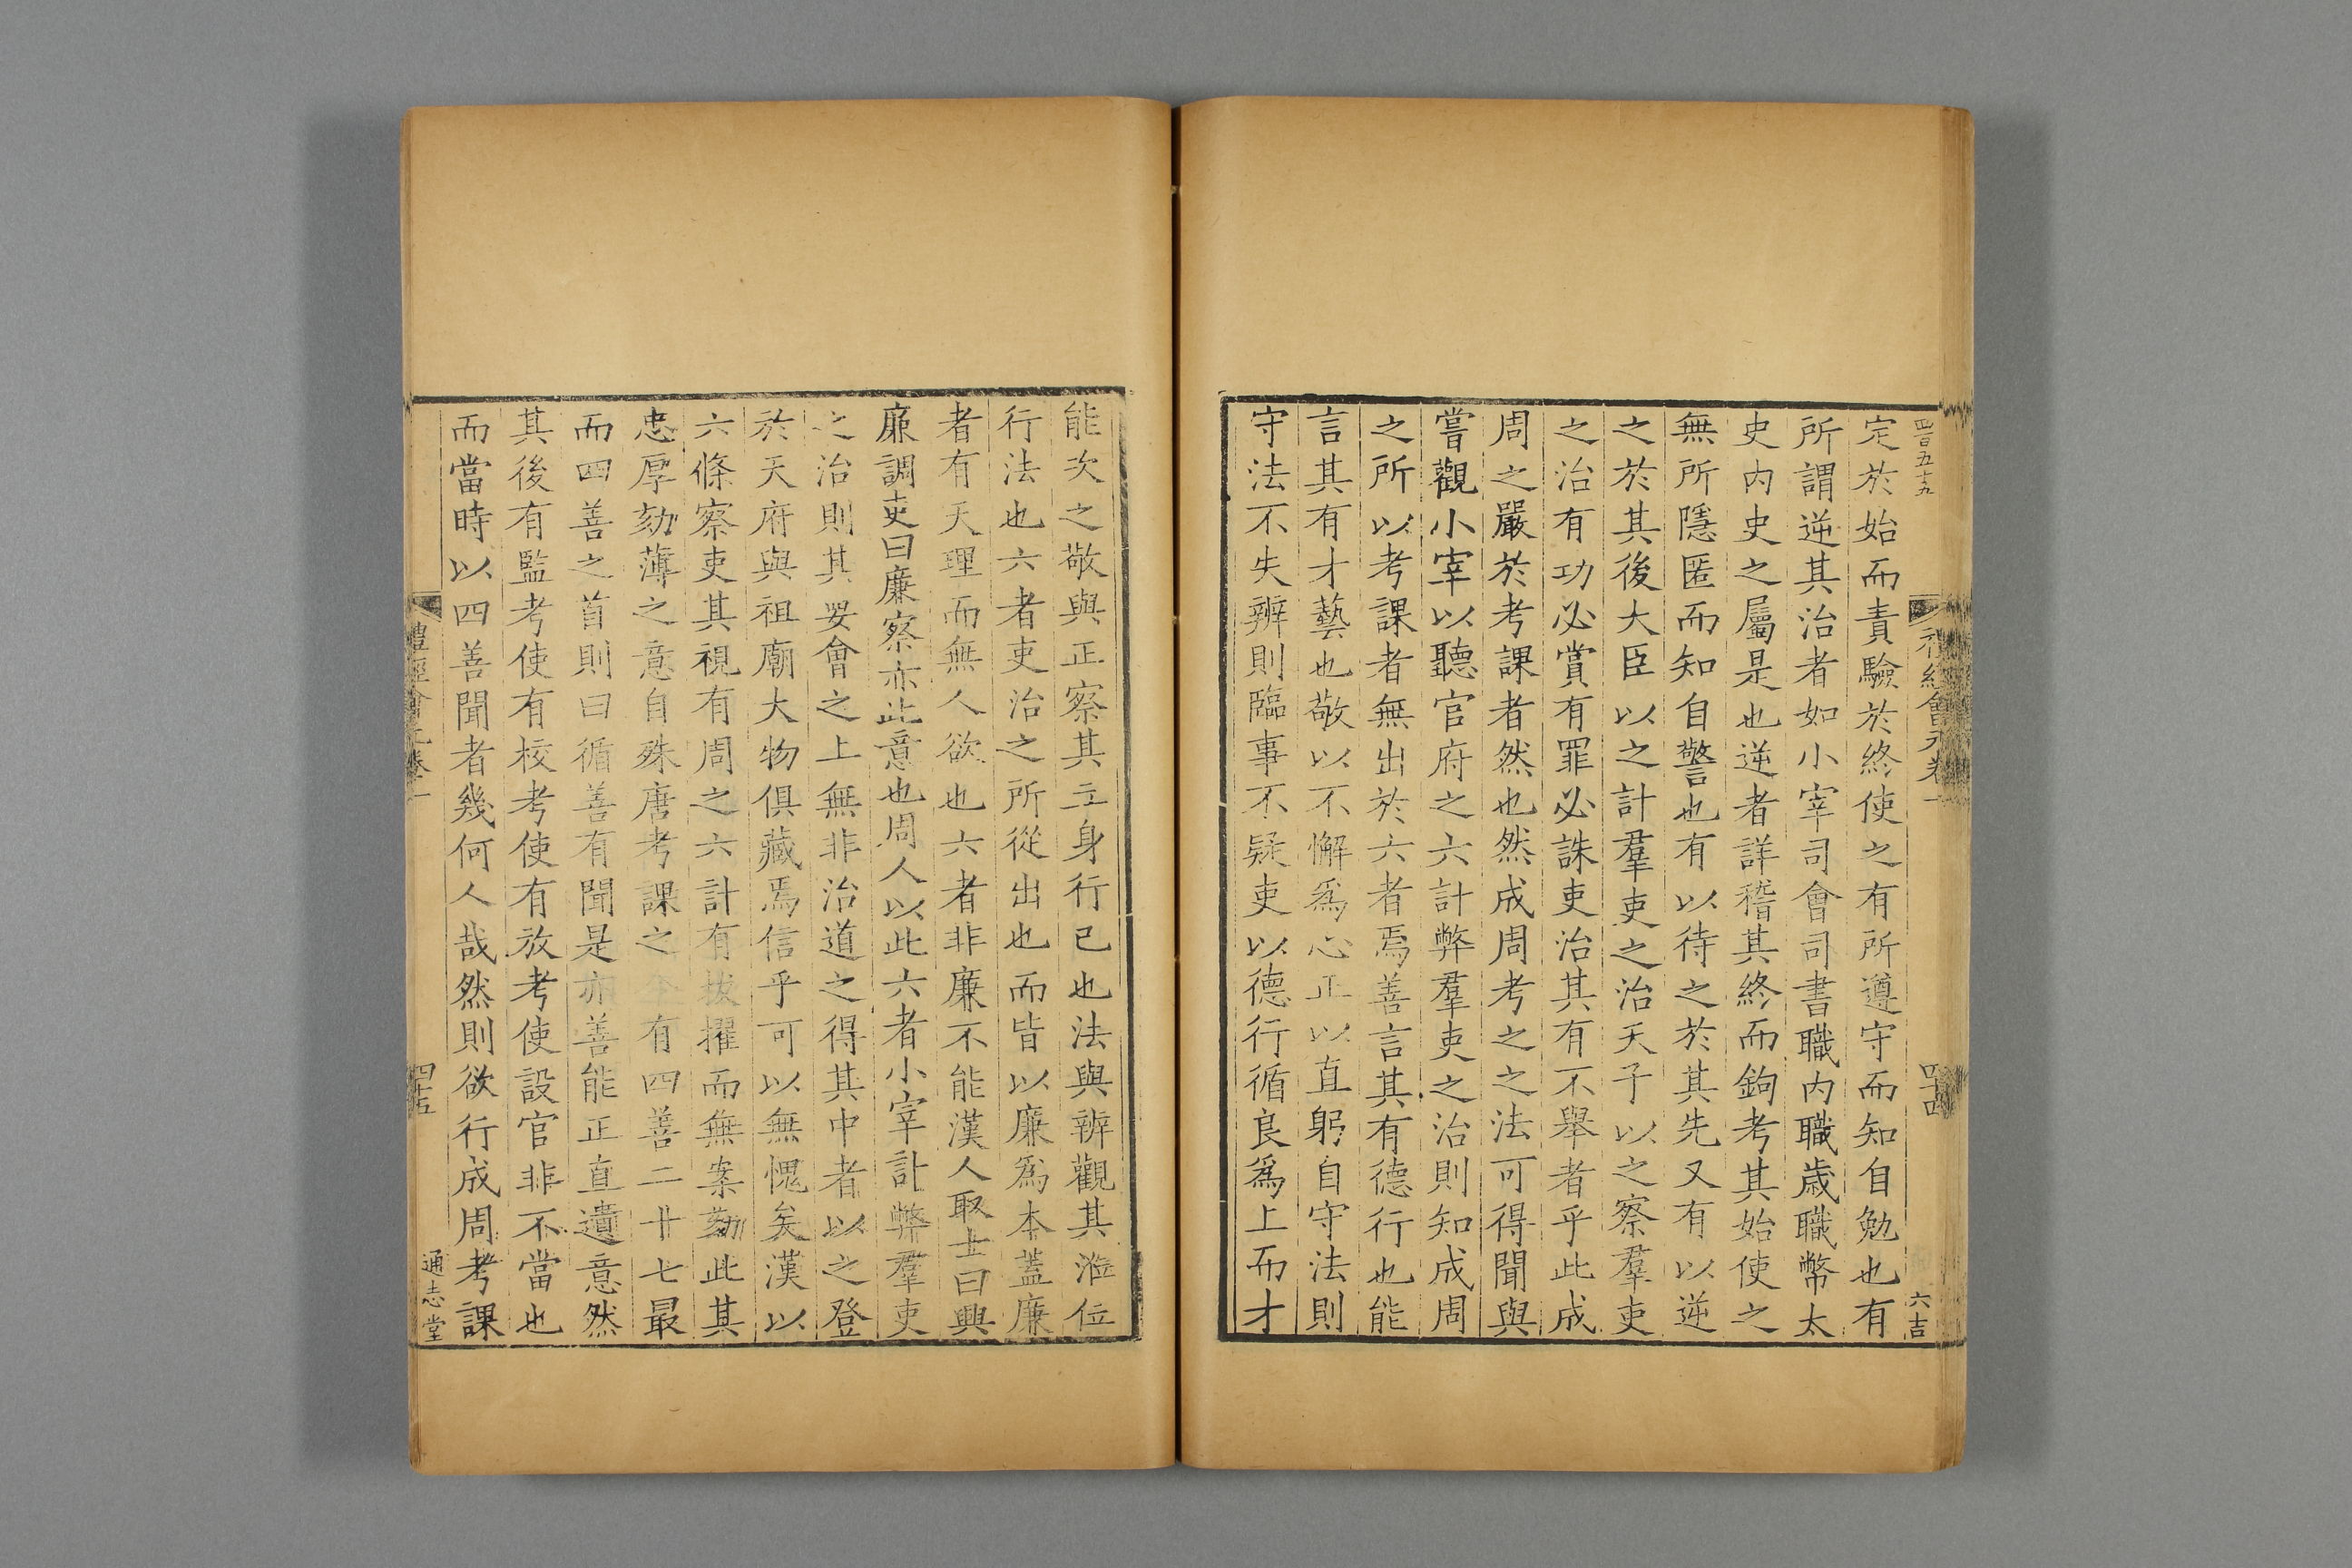 四百五十九
禮經會元卷一
四十四
六吉
定於始而責驗於終使之有所遵守而知自勉也有
所謂逆其治者如小宰司會司書職內職歲職幣太
史内史之屬是也逆者詳稽其終而鉤考其始使之
無所隱匿而知自警也有以待之於其先又有以逆
之於其後大臣以之計羣吏之治天子以之察羣吏
之治有功必賞有罪必誅吏治其有不舉者乎此成
周之嚴於考課者然也然成周考之之法可得聞與
嘗觀小宰以聽官府之六計弊羣吏之治則知成周
之所以考課者無出於六者焉善言其有德行也能
言其有才藝也敬以不懈爲心正以直躬自守法則
守法不失辨則臨事不疑吏以德行循良爲上而才
能次之敬與正察其立身行己也法與辨觀其涖位
行法也六者吏治之所從出也而皆以廉爲本蓋廉
者有天理而無人欲也六者非廉不能漢人取士曰興
廉調吏曰廉察亦此意也周人以此六者小宰計弊羣吏
之治則其要會之上無非治道之得其中者以之登
於天府與祖廟大物俱藏焉信乎可以無愧矣漢以
六條察吏其視有周之六計有拔擢而無案劾此其
忠厚劾薄之意自殊唐考課之令有四善二十七最
而四善之首則曰循善有聞是亦善能正直遺意然
其後有監考使有校考使有放考使設官非不當也
而當時以四善聞者幾何人哉然則欲行成周考課
禮經會元卷一
四十五
通志堂